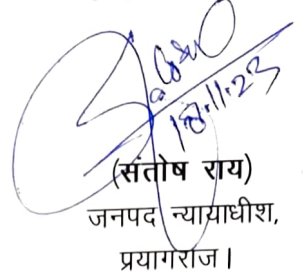 18.11.23
(संतोष राय)
जनपद न्यायाधीश,
प्रयागराज।